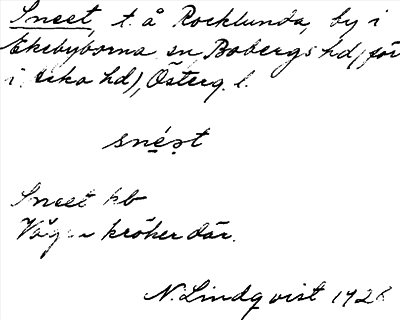 Sneet, t. å Rocklunda, by i
Ekebyborna sn, Bobergs hd, förr
i Aska hd), Österg. l.
snést
Sneet kb
Vägen kröker där.
N. Lindqvist 1926